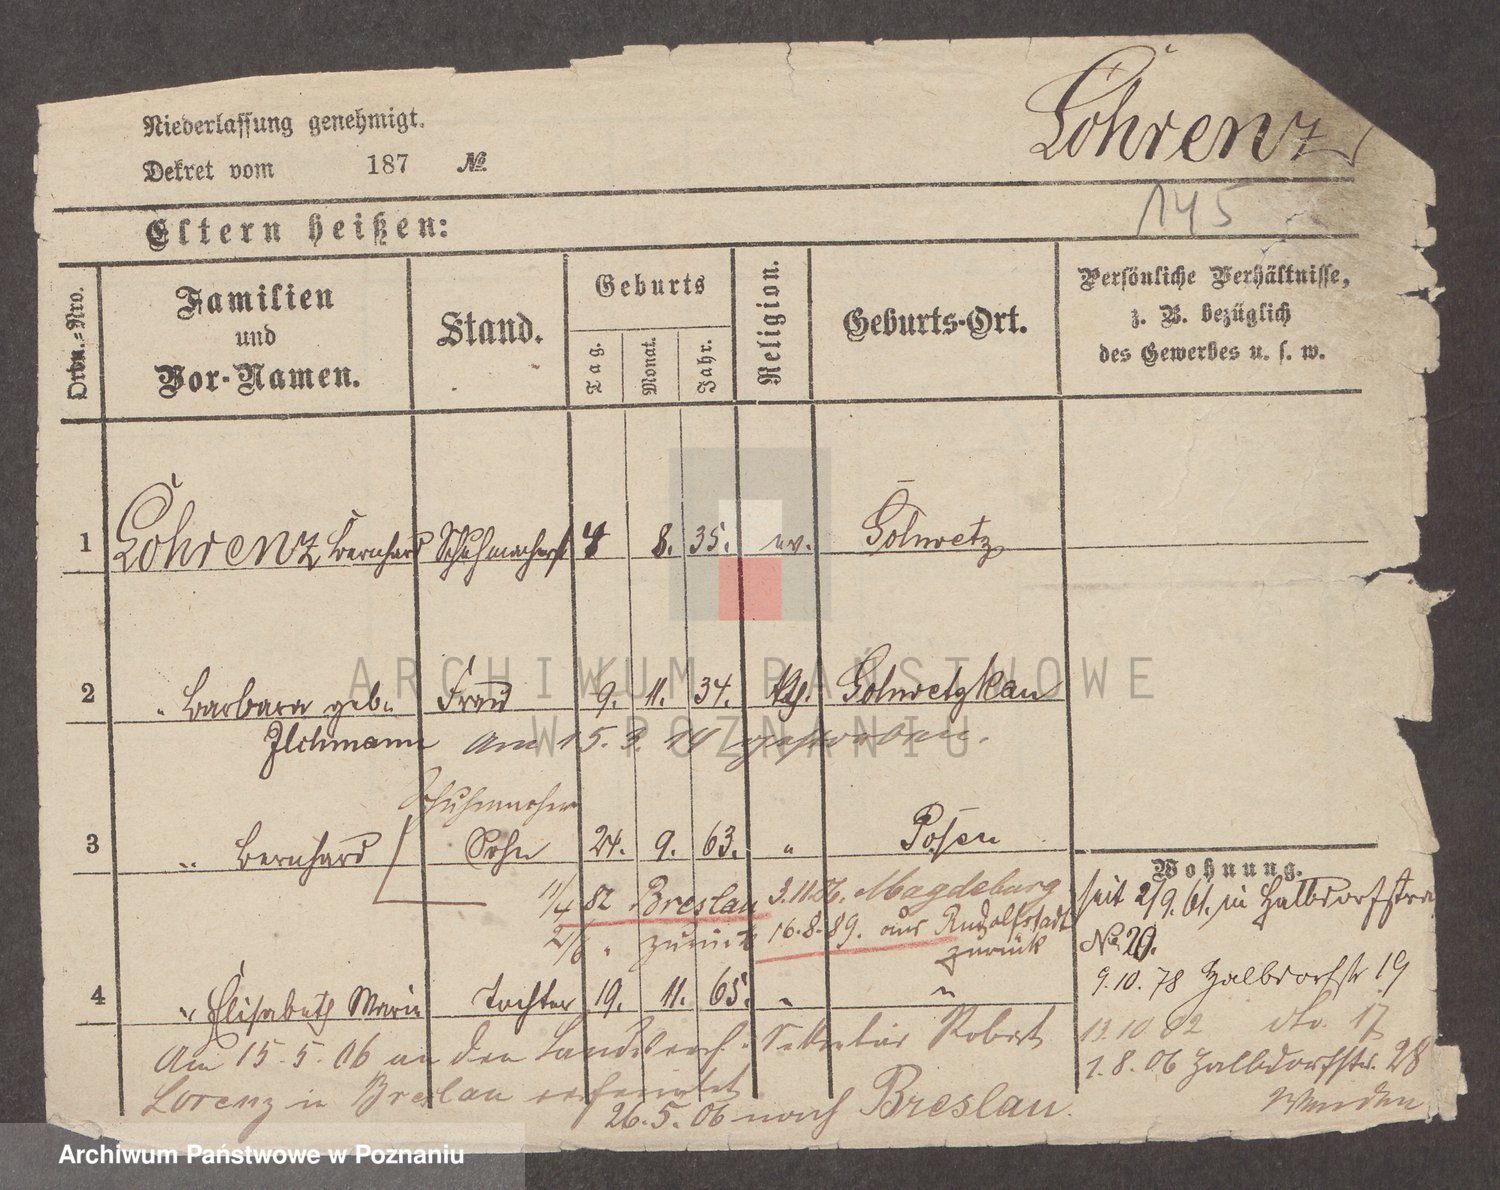 Niederlassung genehmigt.
Dekret vom 187 №
Löhrenz
145
Eltern heißen:
Ordn.-Nro.
Familien
und
Vor-Namen.
Stand.
Geburts
Tag.
Monat.
Jahr.
Religion.
Geburts-Ort.
Persönliche Verhältnisse,
z. B. bezüglich
des Gewerbes u. s. w.
1 Löhrenz Bernhard 4 8. 35. ev.
2 Barbara geb. Frau 9. 11. 34. kth.
am 15. 3. gestorben.
Schuhmacher
3 " Bernhard Sohn 24. 9. 63. " Posen
Wohnung.
11/4 82 Breslau 3.11.86. Magdeburg
seit 2/9. 61. in Halbdorfstra
2/6 " zurück 16.8.89. aus Rudolfstadt
zurück
№ 20.
4 " Elisabeth Marie Tochter 19. 11. 65. " "
9.10.78 Halbdorfstr 19
13.10.82 dto. 17
Am 15.5.06 an den Sekretär Robert
1.8.06 Halbdorfstr. 28
Lorenz in Breslau
26.5.06 nach Breslau.
Wenden
ARCHIWUM PAŃSTWOWE
W POZNANIU
Archiwum Państwowe w Poznaniu